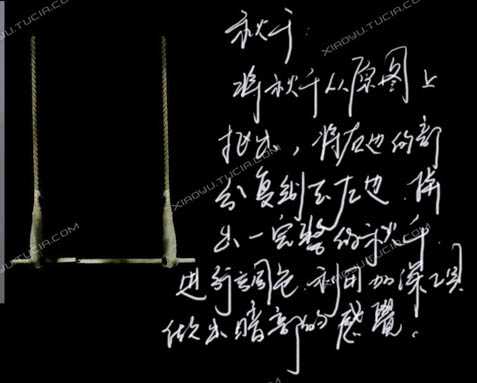 秋千:
将秋千从原图上
抠出，将右边的部
分复制至左边，做
出一完整的秋千.
进行调色.利用加深工具
做出暗部的感覺.
XIAOYU.TUCIA.COM